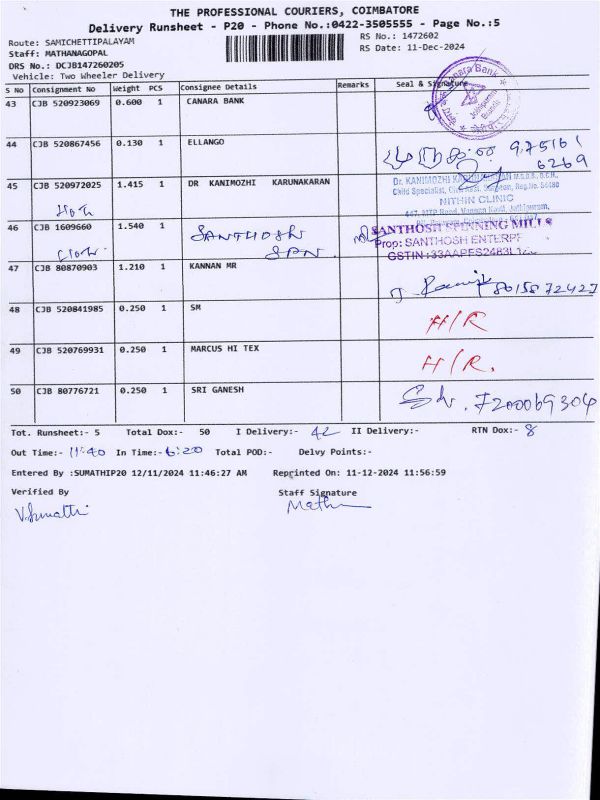 THE PROFESSIONAL COURIERS, COIMBATORE
Delivery Runsheet - P20 - Phone No.:0422-3505555 - Page No.:5
Route: SAMICHETTIPALAYAM
RS No.: 1472602
Staff: MATHANAGOPAL
RS Date: 11-Dec-2024
DRS No.: DCJB147260205
Vehicle: Two Wheeler Delivery
S No Consignment No Weight PCS Consignee Details Remarks Seal & Signature
43 CJB 520923069 0.600 1 CANARA BANK
Canara Bank
44 CJB 520867456 0.130 1 ELLANGO
975161
6269
45 CJB 520972025 1.415 1 DR KANIMOZHI KARUNAKARAN
Dr. KANIMOZHI
Child Specialist,
NITHIN CLINIC
46 CJB 1609660 1.540 1 SANTHOSH
SPN.
SANTHOSH SPINNING MILLS
Prop: SANTHOSH ENTERPR
47 CJB 80870903 1.210 1 KANNAN MR
48 CJB 520841985 0.250 1 SM
H/R
49 CJB 520769931 0.250 1 MARCUS HI TEX
H/R.
50 CJB 80776721 0.250 1 SRI GANESH
7200069304
Tot. Runsheet:- 5 Total Dox:- 50 I Delivery:- 42 II Delivery:- RTN Dox:- 8
Out Time:- 11:40 In Time:- 6:20 Total POD:- Delvy Points:-
Entered By :SUMATHIP20 12/11/2024 11:46:27 AM Reprinted On: 11-12-2024 11:56:59
Verified By
Staff Signature
V.Sumathi